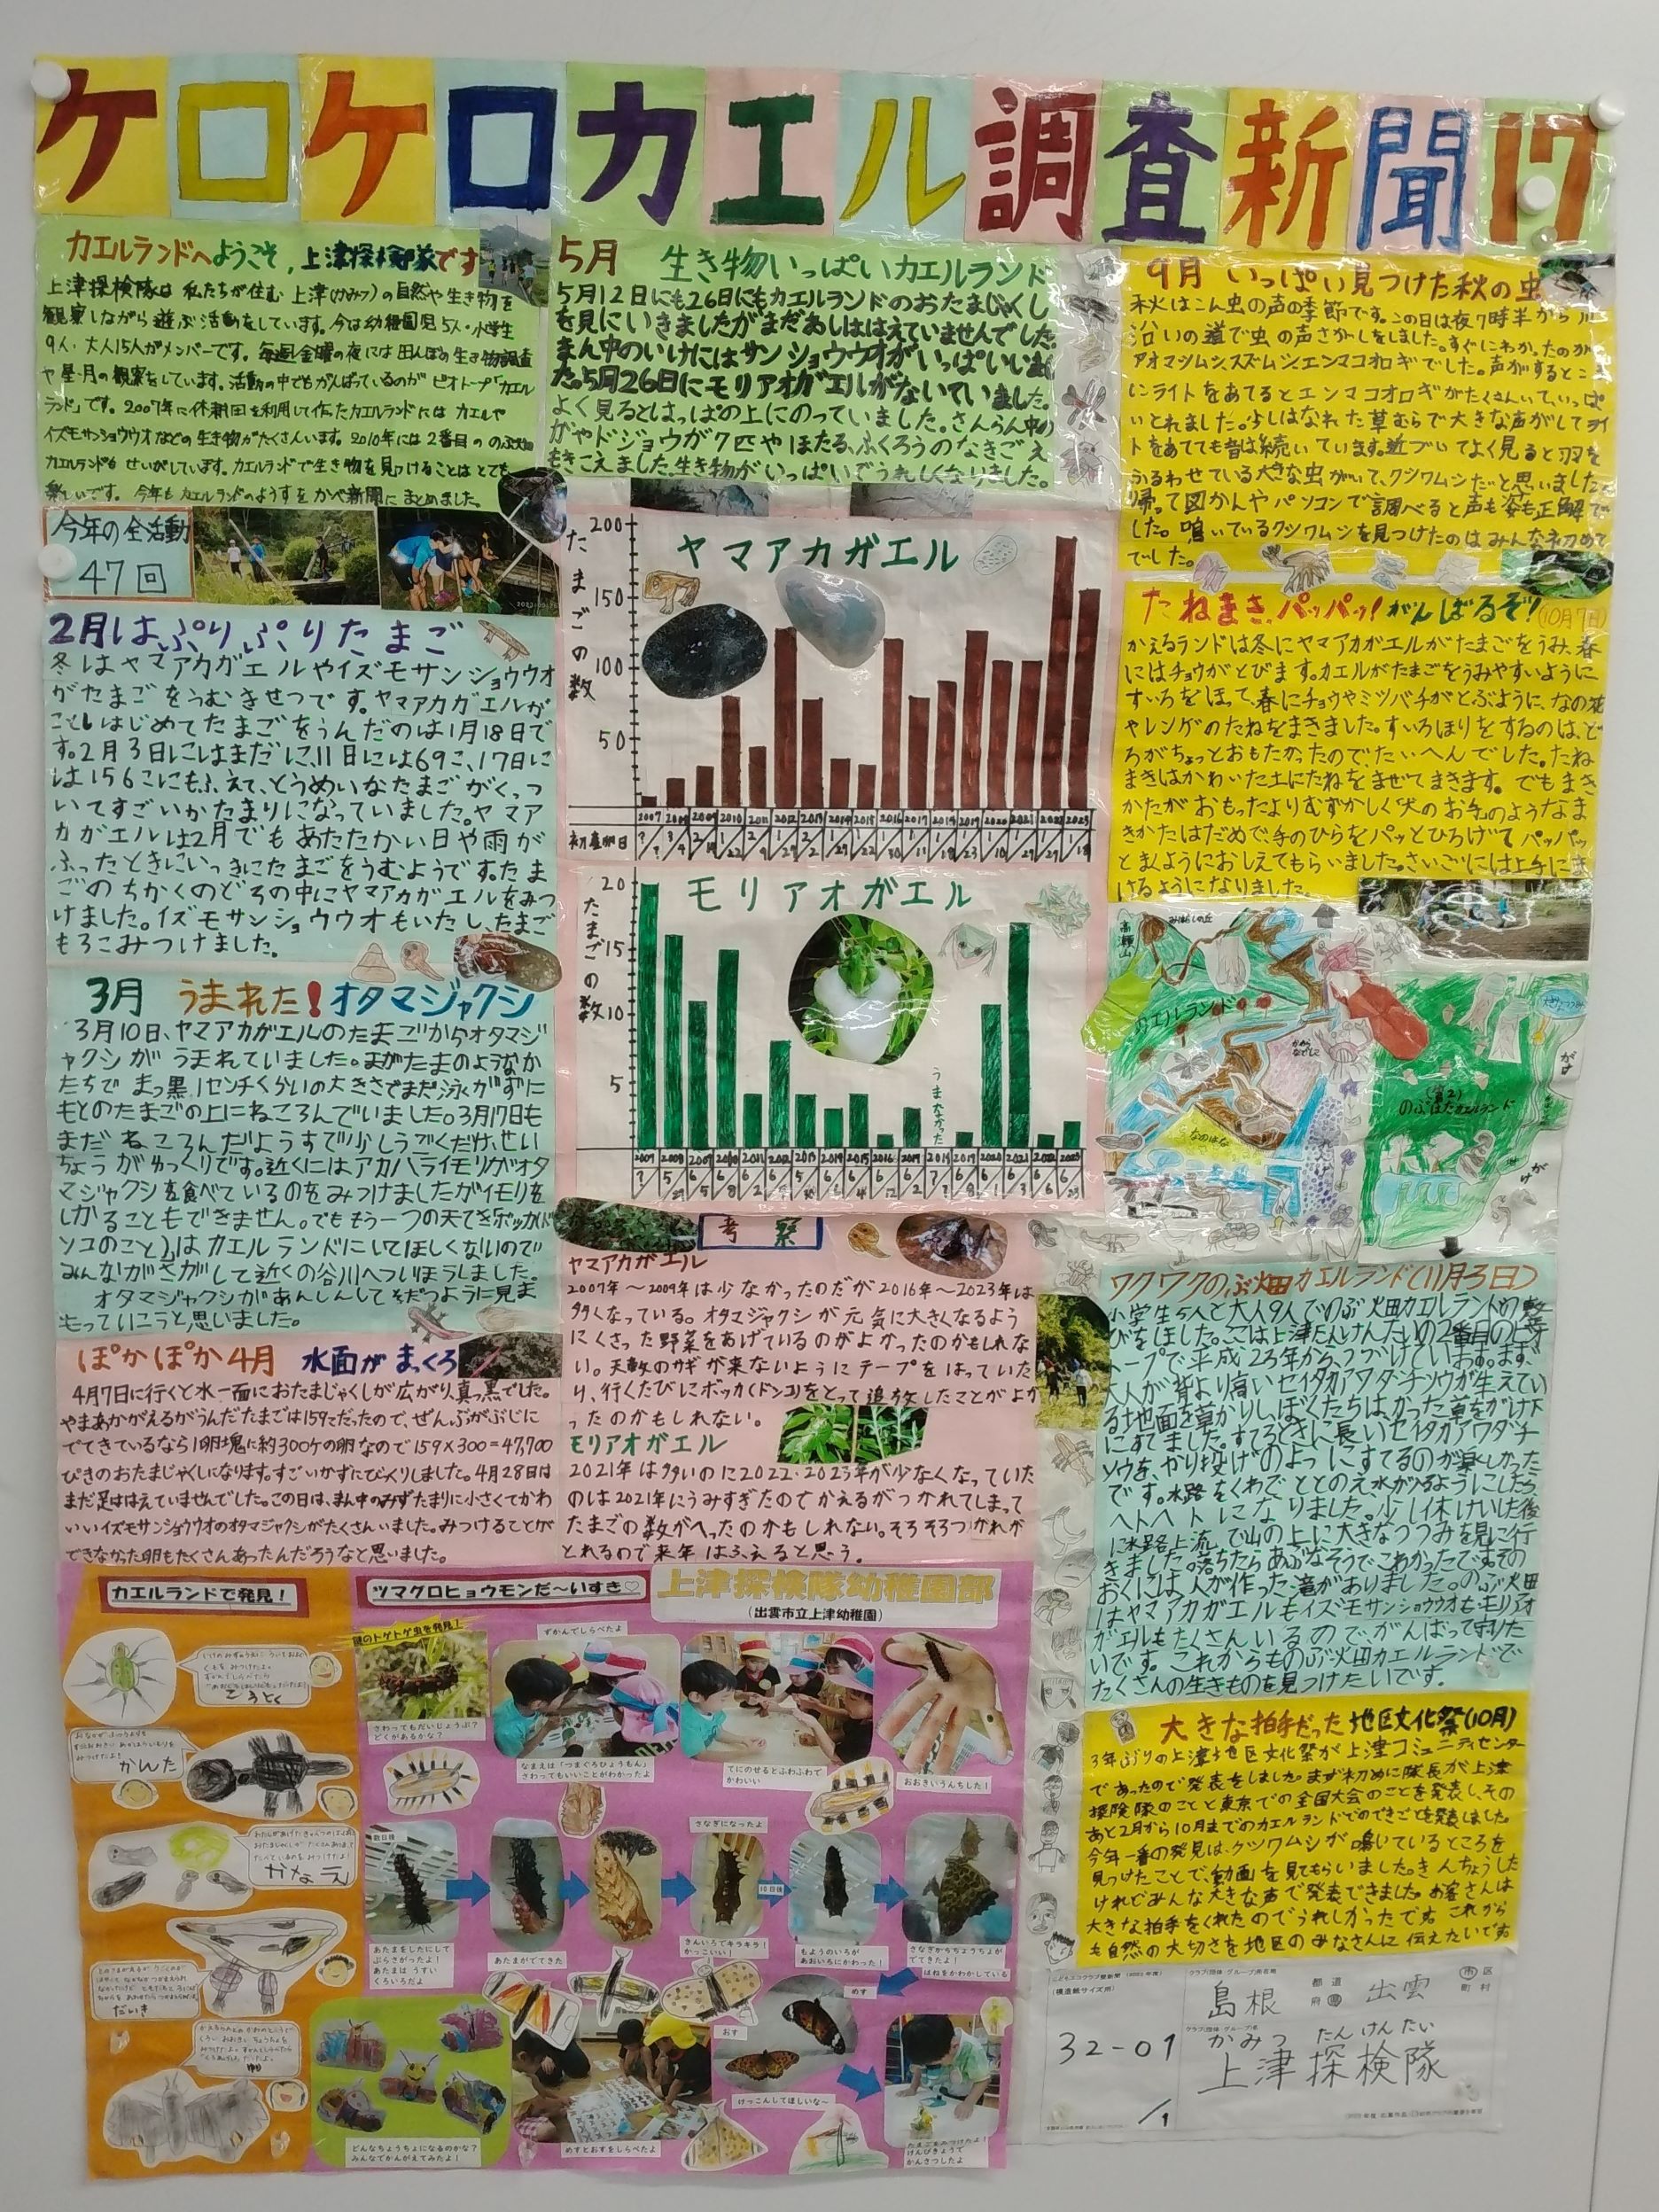 ケロケロカエル調査新聞17
カエルランドへようこそ,上津探検隊です
上津探検隊は私たちが住む上津(かみつ)の自然や生き物を
観察しながら遊ぶ活動をしています。今は幼稚園児5人・小学生
9人・大人15人がメンバーです。毎週金曜の夜には田んぼの生き物調査
や星・月の観察をしています。活動の中でもがんばっているのがビオトープ「カエル
ランド」です。2007年に休耕田を利用して作ったカエルランドにはカエルや
イズモサンショウウオなどの生き物がたくさんいます。2010年には2番目ののぶ畑
カエルランドも せいがしています。カエルランドで生き物を見つけることはとても
楽しいです。今年もカエルランドのようすをかべ新聞にまとめました。
今年の全活動
47回
2月はぷりぷりたまご
冬はヤマアカガエルやイズモサンショウウオ
がたまごをうむきせつです。ヤマアカガエルが
ことしはじめてたまごをうんだのは1月18日で
す。2月3日にはまだに、11日には69こ、17日に
は156こにもふえて、とうめいなたまごがくっつ
いてすごいかたまりになっていました。ヤマア
カガエルは2月でもあたたかい日や雨が
ふったときにいっきにたまごをうむようです。たま
ごのちかくのどろの中にヤマアカガエルをみつ
けました。イズモサンショウウオもいたし、たまご
もろこみつけました。
3月 うまれた!オタマジャクシ
3月10日、ヤマアカガエルのたまごからオタマジ
ャクシがうまれていました。まがたまのようなか
たちでまっ黒1センチくらいの大きさでまだ泳がずに
もとのたまごの上にねころんでいました。3月17日も
まだねころんだようすで少しうごくだけ、せい
ちょうがゆっくりです。近くにはアカハライモリがオタ
マジャクシを食べているのをみつけましたがイモリを
しかることもできません。でももう一つの天てき「ボッカ(ド
ンコのこと)」はカエルランドにいてほしくないので
みんながさがして近くの谷川へついほうしました。
オタマジャクシがあんしんしてそだつように見ま
もっていこうと思いました。
ぽかぽか4月 水面がまっくろ
4月7日に行くと水一面におたまじゃくしが広がり、真っ黒でした。
やまあかがえるがうんだたまごは159こだったので、ぜんぶがぶじに
でてきているなら1卵塊に約300ケの卵なので159×300=47,700
ぴきのおたまじゃくしになります。すごいかずにびっくりしました。4月28日は
まだ足ははえていませんでした。この日は、まん中のみずたまりに小さくてかわ
いいイズモサンショウウオのオタマジャクシがたくさんいました。みつけることが
できなかった卵もたくさんあったんだろうなと思いました。
5月 生き物いっぱいカエルランド
5月12日にも26日にもカエルランドのおたまじゃくし
を見にいきましたがまだあしははえていませんでした。
まん中のいけにはサンショウウオがいっぱいいまし
た。5月26日にモリアオガエルがないていました。
よく見るとはっぱの上にのっていました。さんらん中の
がやドジョウが7匹やほたる、ふくろうのなきごえ
もきこえました。生き物がいっぱいでうれしくなりました。
ヤマアカガエル
たまごの数
200
150
100
50
2007 2008 2009 2010 2011 2012 2013 2014 2015 2016 2017 2018 2019 2020 2021 2022 2023
初産卵日
モリアオガエル
たまごの数
20
15
10
5
うまなかった
2007 2008 2009 2010 2011 2012 2013 2014 2015 2016 2017 2018 2019 2020 2021 2022 2023
考察
ヤマアカガエル
2007年~2009年は少なかったのだが2016年~2023年は
多くなっている。オタマジャクシが元気に大きくなるよう
にくさった野菜をあげているのがよかったのかもしれな
い。天敵のサギが来ないようにテープをはっていた
り、行くたびにボッカ(ドンコ)をとって追放したことがよか
ったのかもしれない。
モリアオガエル
2021年は多いのに2022・2023年が少なくなっていた
のは2021年にうみすぎたのでかえるがつかれてしまって
たまごの数がへったのかもしれない。そろそろつかれが
とれるので来年はふえると思う。
9月 いっぱい見つけた秋の虫
秋はこん虫の声の季節です。この日は夜7時半から川
沿いの道で虫の声さがしをしました。すぐにわかったのが
アオマツムシ、スズムシ、エンマコオロギでした。声がするところ
にライトをあてるとエンマコオロギがたくさんいていっぱ
いとれました。少しはなれた草むらで大きな声がしてライ
トをあてても音は続いています。近づいてよく見ると羽を
ふるわせている大きな虫がいて、クツワムシだと思いました。
帰って図かんやパソコンで調べると声も姿も正解で
した。鳴いているクツワムシを見つけたのはみんな初めて
でした。
たねまき、パッパッ!がんばるぞ!(10月7日)
かえるランドは冬にヤマアカガエルがたまごをうみ、春
にはチョウがとびます。カエルがたまごをうみやすいように
すいろをほって、春にチョウやミツバチがとぶように、なの花
やレンゲのたねをまきました。すいろほりをするのは、ど
ろがちょっとおもたかったので、たいへんでした。たね
まきはかわいた土にたねをまぜてまきます。でもまき
かたがおもったよりむずかしく犬のお手のようなま
きかたはだめで、手のひらをパッとひろげてパッパッ
とまくようにおしえてもらいました。さいごには上手にま
けるようになりました。
高瀬山
カエルランド
なのはな
(第2)
のぶはたカエルランド
がけ
ワクワクのぶ畑カエルランド(11月3日)
小学生5人と大人9人でのぶ畑カエルランドの整
びをしました。ここは上津たんけんたいの2番目のビオ
トープで平成23年からつづけています。まず、
大人が背より高いセイタカアワダチソウが生えてい
る地面を草かりし、ぼくたちは、かった草をがけ下
にすてました。すてるときに長いセイタカアワダチ
ソウを、やり投げのようにすてるのが楽しかった
です。水路をくわでととのえ水がくるようにしたら
ヘトヘトになりました。少し休けいした後
に水路上流で山の上に大きなつつみを見に行
きました。落ちたらあぶなそうでこわかったです。その
おくには人が作った滝がありました。のぶ火田
はヤマアカガエルもイズモサンショウウオもモリアオ
ガエルもたくさんいるのでがんばって守りた
いです。これからものぶ火田カエルランドで
たくさんの生きものを見つけたいです。
大きな拍手だった地区文化祭(10月)
3年ぶりの上津地区文化祭が上津コミュニティセンター
であったので発表をしました。まず初めに隊長が上津
探険隊のことと東京での全国大会のことを発表し、その
あと2月から10月までのカエルランドでのできごとを発表しました。
今年一番の発見は、クツワムシが鳴いているところを
見つけたことで、動画を見てもらいました。きんちょうした
けれどみんな大きな声で発表できました。お客さんは
大きな拍手をくれたのでうれしかったです。これから
も自然の大切さを地区のみなさんに伝えたいです。
カエルランドで発見!
ごうとく
かんた
かなえ
だいき
ツマグロヒョウモンだ~いすき♡
上津探検隊幼稚園部
(出雲市立上津幼稚園)
謎のトゲトゲ虫を発見!
ずかんでしらべたよ
さわってもだいじょうぶ?
どくがあるかな?
なまえは「つまぐろひょうもん」
さわってもいいことがわかったよ
てにのせるとふわふわで
かわいい
おおきいうんちした!
数日後
さなぎになったよ
10日後
あたまをしたにして
ぶらさがったよ!
あたまは うすい
くろいろだよ
あたまがでてきた
きんいろでキラキラ!
かっこいい!
もようのいろが
あおいろにかわった!
さなぎからちょうちょが
でてきたよ!
はねをかわかしている
めす
おす
けっこんしてほしいな~
どんなちょうちょになるのかな?
みんなでかんがえてみたよ!
めすとおすをしらべたよ
たまごをみつけたよ!
けんびきょうで
かんさつしたよ
こどもエコクラブ壁新聞(2023年度)
(模造紙サイズ用)
32-01
/1
クラブ(団体・グループ)所在地
島根 都道府県 出雲 市区町村
クラブ(団体・グループ)名
かみつ たんけんたい
上津探検隊